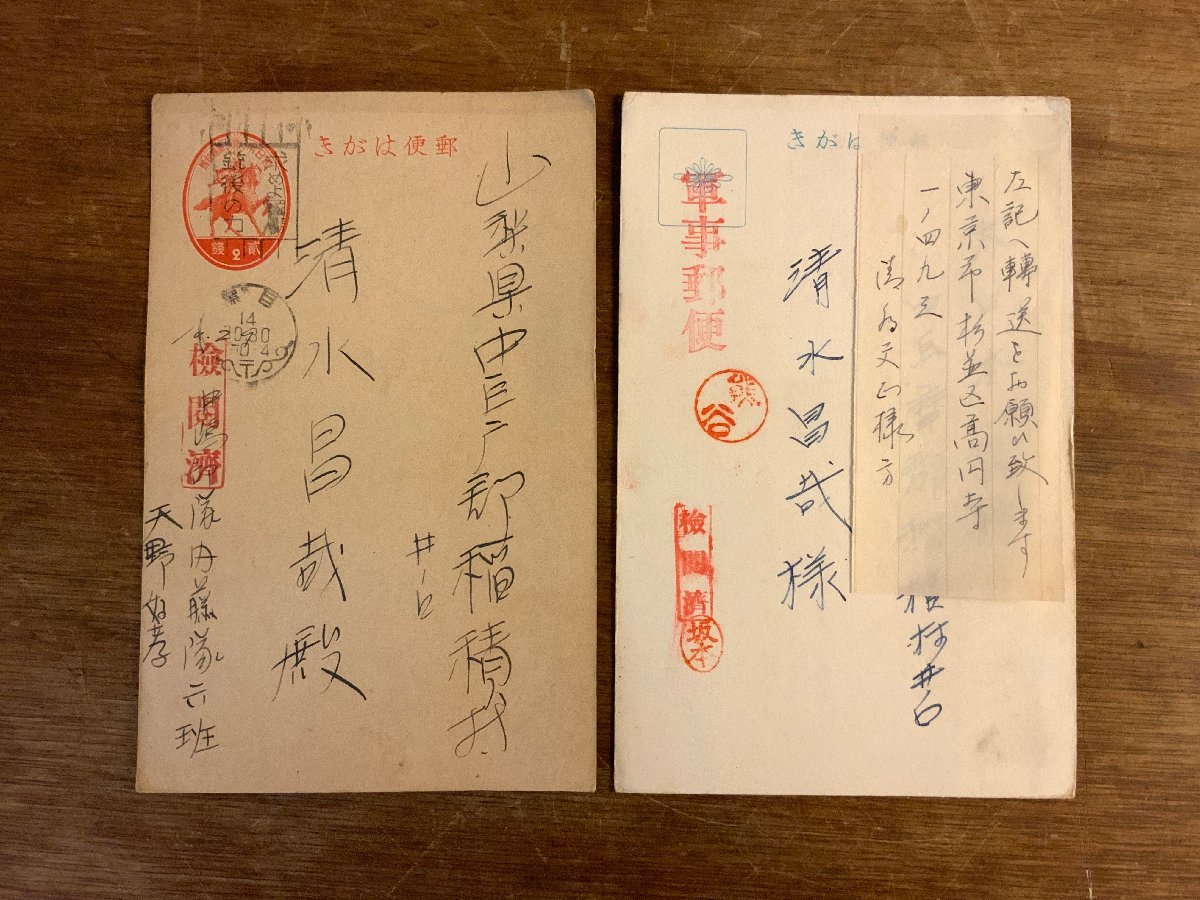 きがは便郵
貳 2 錢
銃後の力
14
檢閲濟
山梨県中巨摩郡稲積村
井ノ口
清水昌哉殿
隊内藤隊六班
天野
きがは
軍事郵便
熊谷
檢閲濟
坂本
左記へ轉送をお願ひ致します
東京市杉並区高円寺
一ノ四九三
清水文正様方
清水昌哉様
積村井ノ口